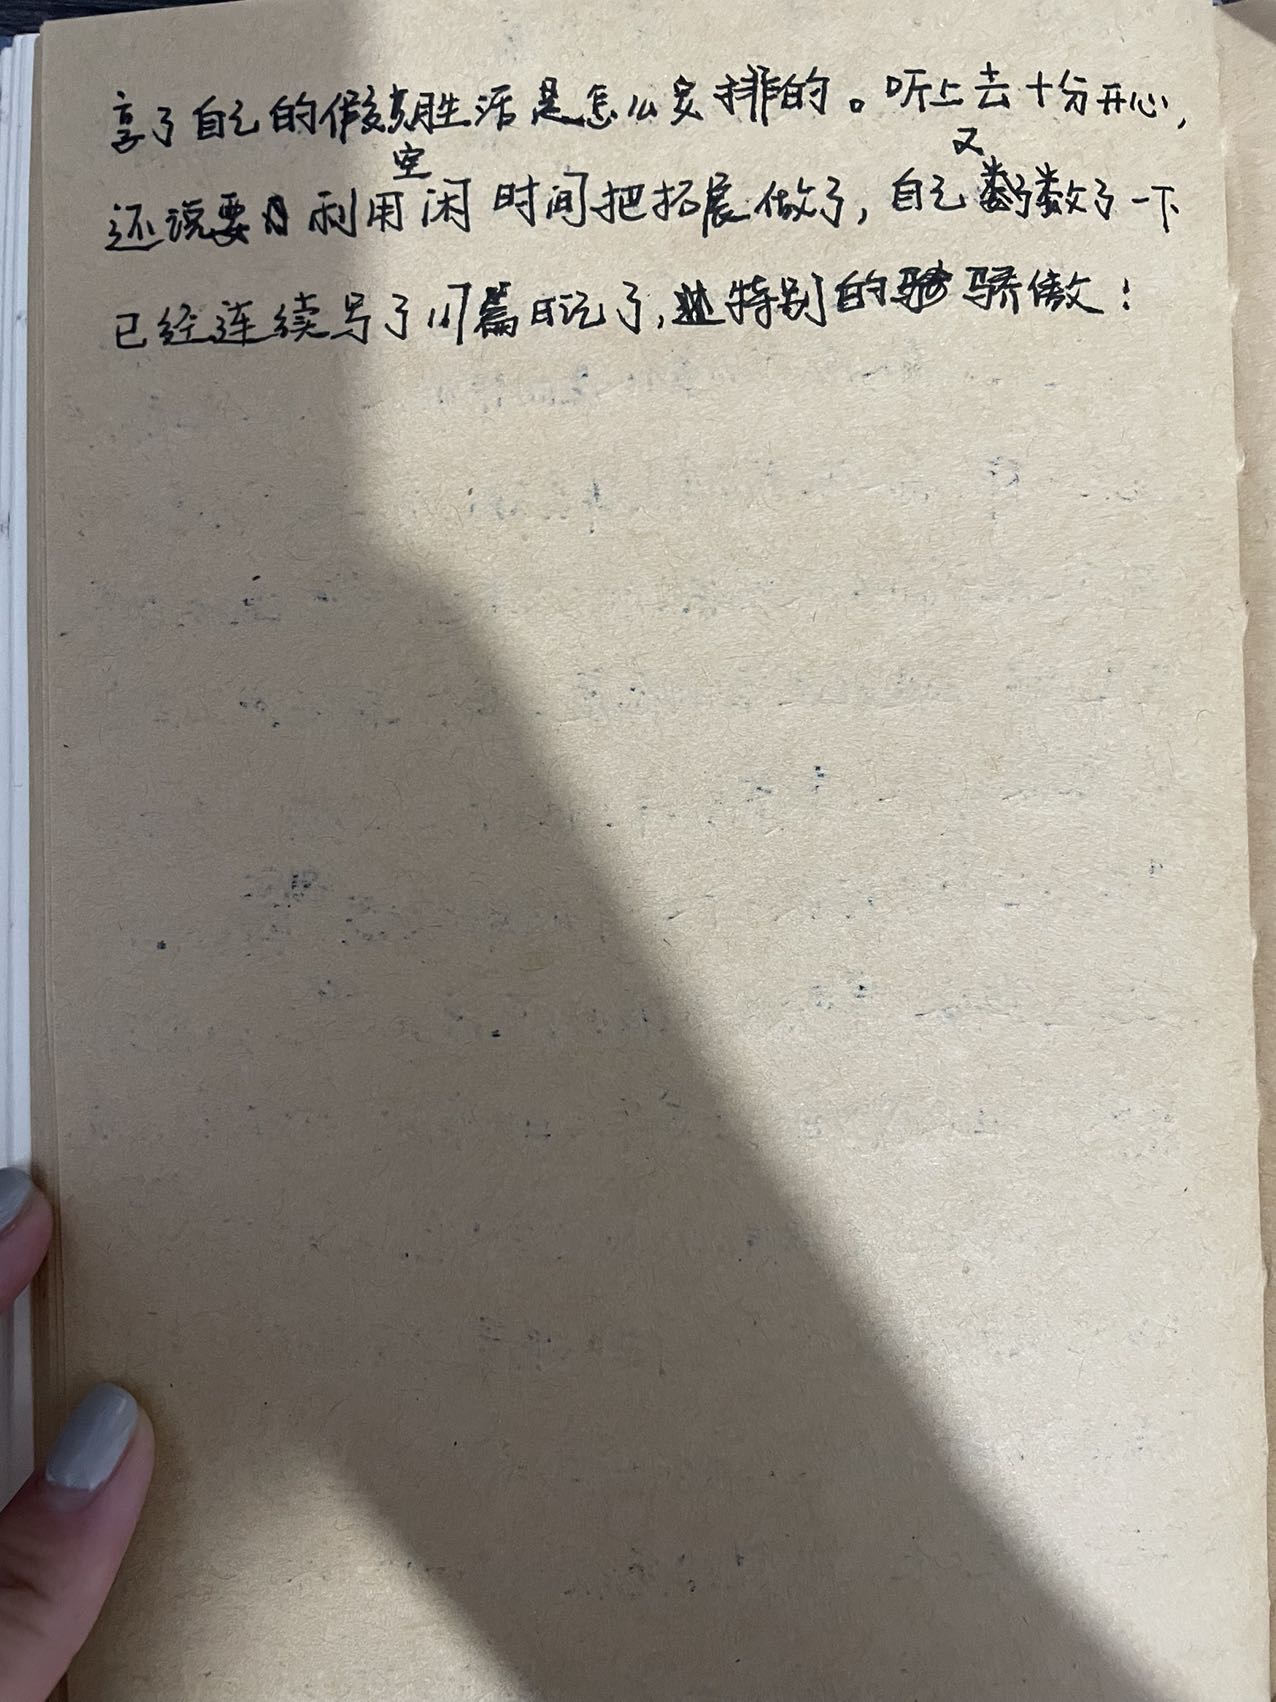 享了自己的假期生活是怎么安排的。听上去十分开心，
还说要利用空闲时间把拓展做了，自己又数了数了一下
已经连续写了11篇日记了，特别的骄傲！